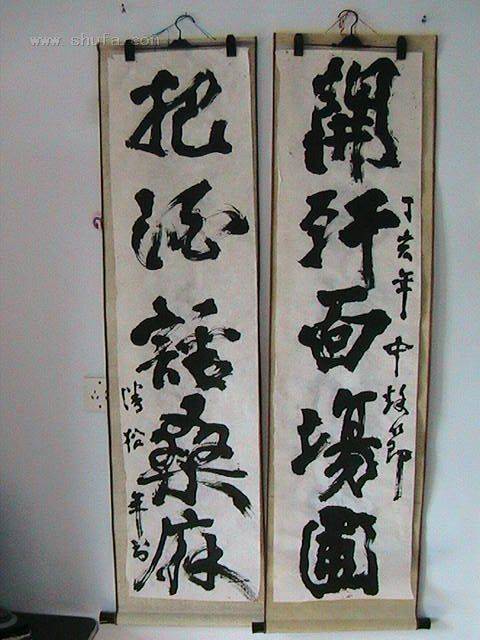 開軒面場圃
丁亥年 中秋節
把酒話桑麻
www.shufa.com